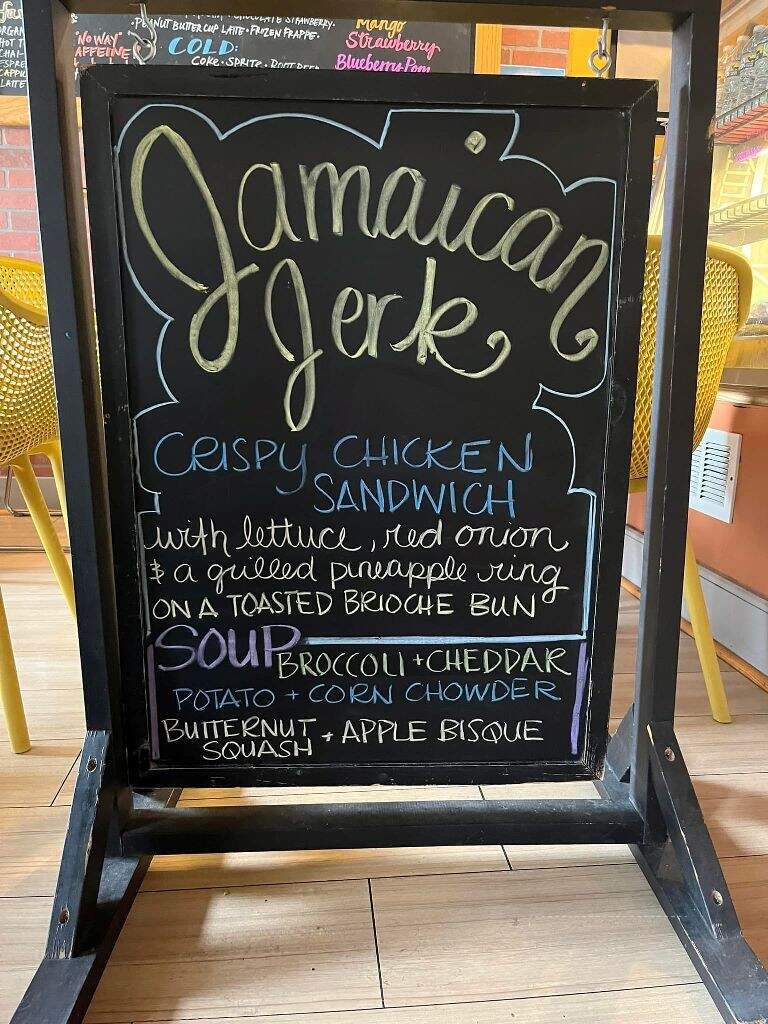 PEANUT BUTTER CUP LATTE • FROZEN FRAPPE •
"NO WAY"
CAFFEINE
COLD:
COKE • SPRITE •
Mango
Strawberry
Blueberry Pom
Jamaican
Jerk
CRISPY CHICKEN
SANDWICH
with lettuce, red onion
& a grilled pineapple ring
ON A TOASTED BRIOCHE BUN
SOUP
BROCCOLI + CHEDDAR
POTATO + CORN CHOWDER
BUTTERNUT
SQUASH + APPLE BISQUE